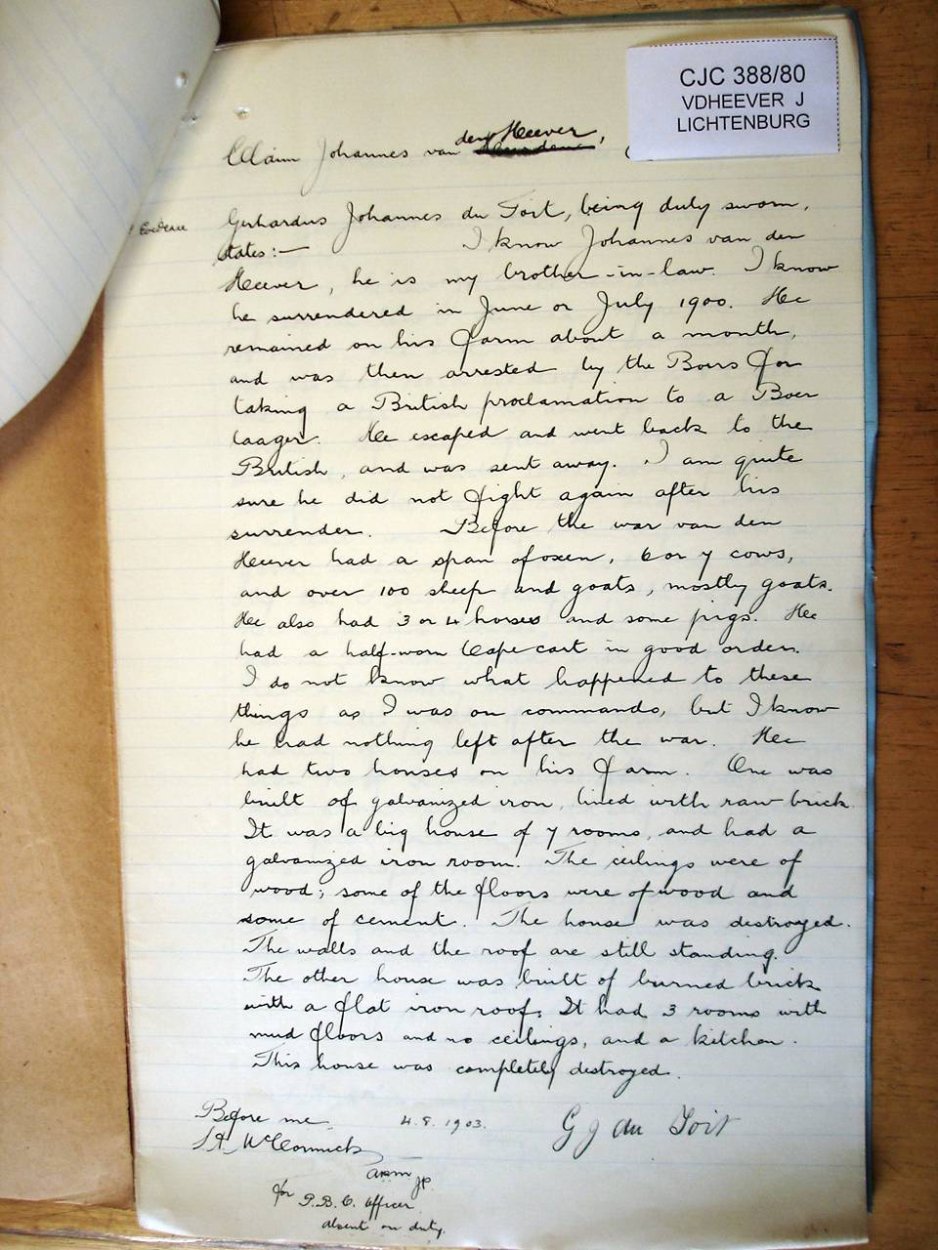 CJC 388/80
VDHEEVER J
LICHTENBURG
Claim Johannes van den Heever,
Evidence
Gerhardus Johannes du Toit, being duly sworn,
states:— I know Johannes van den
Heever, he is my brother-in-law. I know
he surrendered in June or July 1900. He
remained on his farm about a month,
and was then arrested by the Boers for
taking a British proclamation to a Boer
laager. He escaped and went back to the
British, and was sent away. I am quite
sure he did not fight again after his
surrender. Before the war van den
Heever had a span of oxen, 6 or 7 cows,
and over 100 sheep and goats, mostly goats.
He also had 3 or 4 horses and some pigs. He
had a half-worn Cape cart in good order.
I do not know what happened to these
things as I was on commando, but I know
he had nothing left after the war. He
had two houses on his farm. One was
built of galvanized iron, lined with raw brick.
It was a big house of 7 rooms, and had a
galvanized iron room. The ceilings were of
wood; some of the floors were of wood and
some of cement. The house was destroyed.
The walls and the roof are still standing.
The other house was built of burned brick
with a flat iron roof. It had 3 rooms with
mud floors and no ceilings, and a kitchen.
This house was completely destroyed.
Before me, 4.8.1903. G J du Toit
McCormick
ARM JP
for P.B.C. Officer
absent on duty.